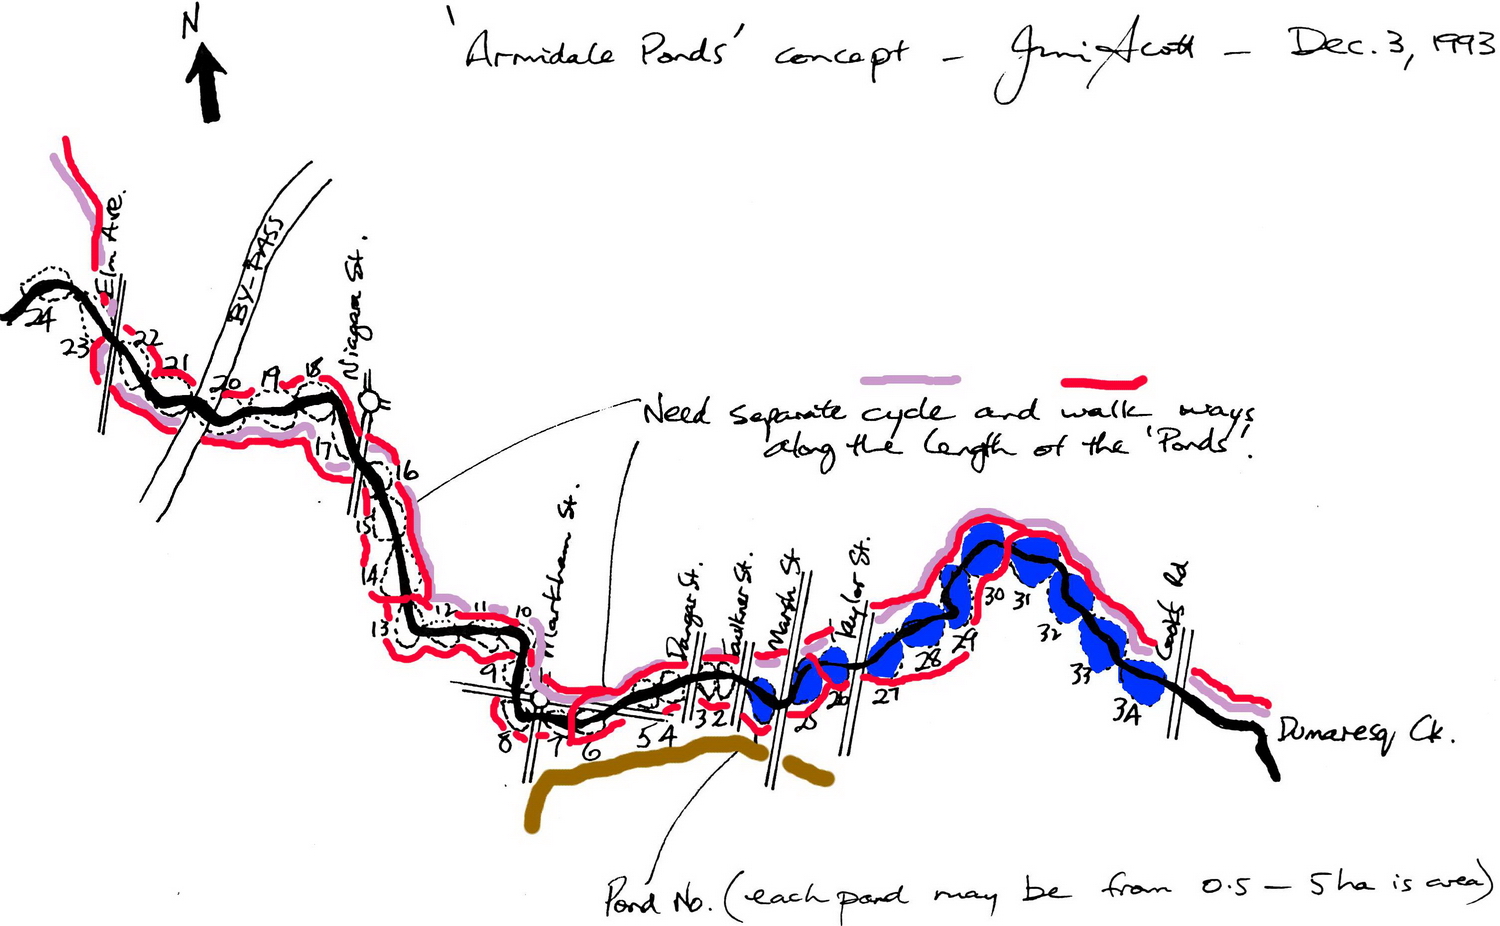 N
'Armidale Ponds' concept – Jim Scott – Dec. 3, 1993
Elm Ave.
BY-PASS
Niagara St.
24
23
22
21
20
19
18
17
16
15
14
13
12
11
10
9
8
7
6
5
4
3
2
Need separate cycle and walk ways
along the length of the 'Ponds'.
Markham St.
Dangar St.
Faulkner St.
Marsh St.
Taylor St.
Cooks Rd
1
25
26
27
28
29
30
31
32
33
34
Dumaresq Ck.
Pond No. (each pond may be from 0.5 – 5 ha is area)